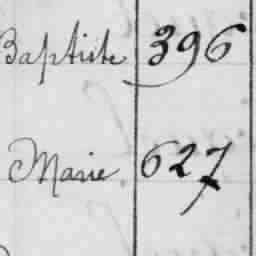 Baptiste 396
Marie 627